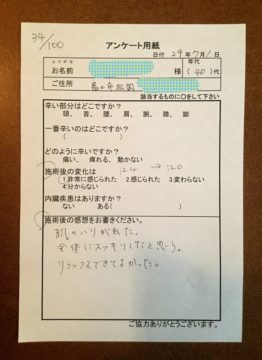 34/100
アンケート用紙
日付 29年7月1日
ふりがな
お名前 様
年代 (40)代
ご住所
該当するものに〇をして下さい
辛い部分はどこですか?
頭、首、腰、肩、腕、膝、脚
一番辛いのはどこですか?
( )
どのように辛いですか?
痛い、痺れる、動かない
施術後の変化は 124 → 120
1.非常に感じられた 2.感じられた 3.変わらない
4.分からない
内臓疾患はありますか?
ない ある( )
施術後の感想をお書きください。
肌のハリが出た。
全体にスッキリしたと思う。
リラックスできてよかった。
ご協力ありがとうございます。